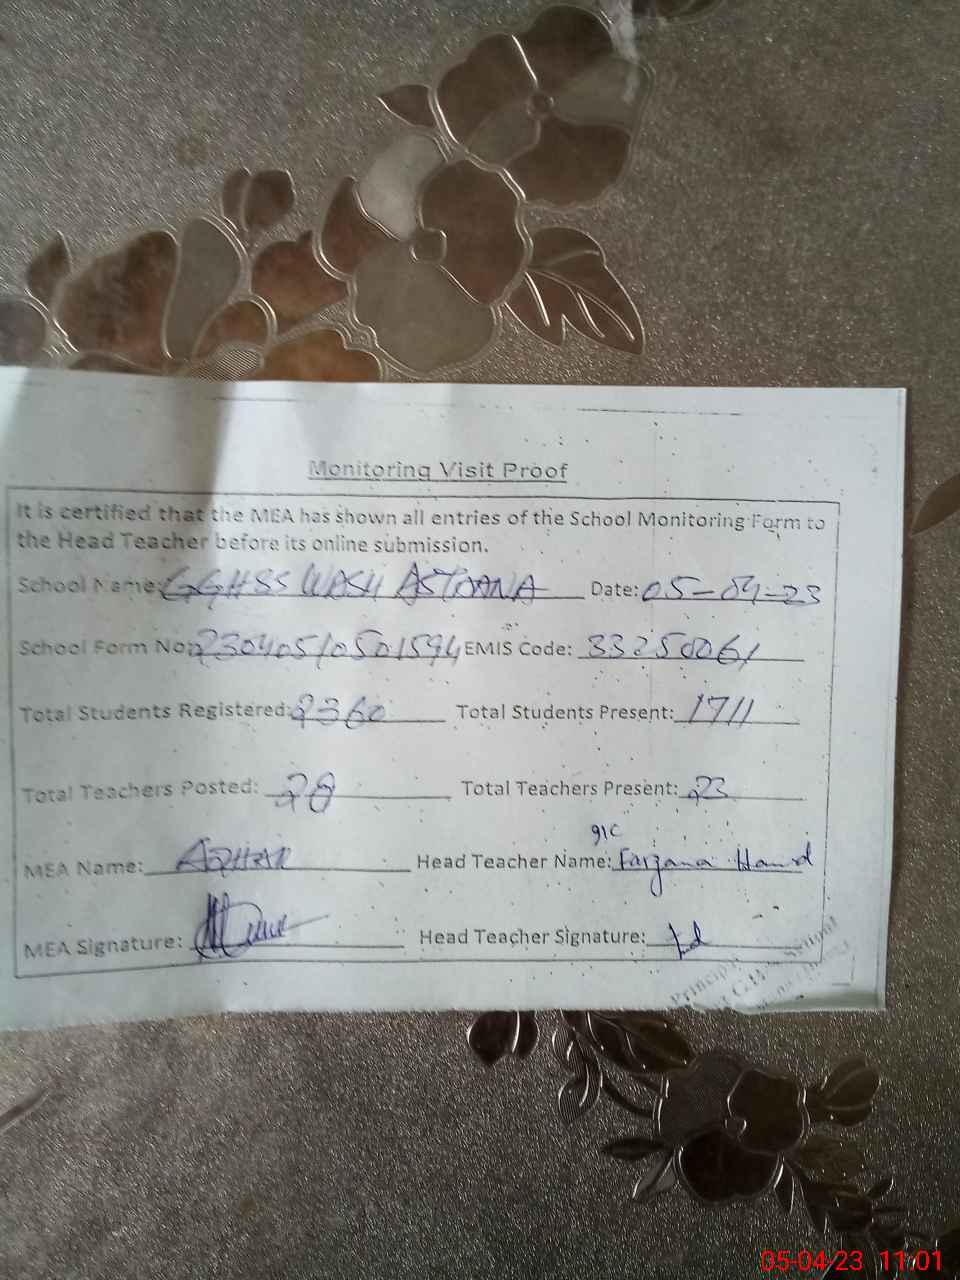 Monitoring Visit Proof
It is certified that the MEA has shown all entries of the School Monitoring Form to
the Head Teacher before its online submission.
School Name: GGHSS WASU ASTHANA Date: 05-04-23
School Form No: 23040510501594 EMIS Code: 33250061
Total Students Registered: 2360 Total Students Present: 1711
Total Teachers Posted: 28 Total Teachers Present: 23
MEA Name: AZHAR Head Teacher Name: Farzana Hamid
MEA Signature: Head Teacher Signature:
Principal
School
05-04-23 11:01